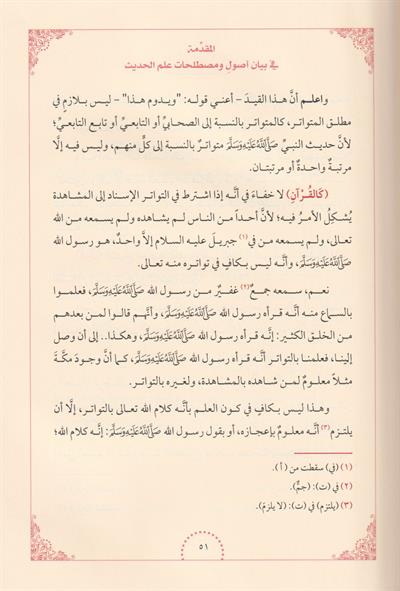 المقدّمة
في بيان أصول ومصطلحات علم الحديث
واعلم أنَّ هذا القيدَ – أعني قوله: "ويدوم هذا" – ليس بلازم في
مطلق المتواتر، كالمتواتر بالنسبة إلى الصحابيِّ أو التابعيِّ أو تابع التابعيِّ؛
لأنَّ حديث النبيِّ صَلَّى اللَّهُ عَلَيْهِ وَسَلَّمَ متواترٌ بالنسبة إلى كلٍّ منهم، وليس فيه إلَّا
مرتبةٌ واحدةٌ أو مرتبتان.
(كَالقُرْآنِ) لا خفاءَ في أنَّه إذا اشترط في التواتر الإسناد إلى المشاهدة
يُشكِلُ الأمرُ فيه؛ لأنَّ أحداً من الناس لم يشاهده ولم يسمعه من الله
تعالى، ولم يسمعه من في (١) جبريلَ عليه السلام إلَّا واحدٌ، هو رسول الله
صَلَّى اللَّهُ عَلَيْهِ وَسَلَّمَ، وأنَّه ليس بكافٍ في تواتره منه تعالى.
نعم، سمعه جمعٌ (٢) غفيرٌ من رسول الله صَلَّى اللَّهُ عَلَيْهِ وَسَلَّمَ، فعلموا
بالسماع منه أنَّه قرأه رسول الله صَلَّى اللَّهُ عَلَيْهِ وَسَلَّمَ، وأنَّهم قالوا لمن بعدهم
من الخلق الكثير: إنَّه قرأه رسول الله صَلَّى اللَّهُ عَلَيْهِ وَسَلَّمَ، وهكذا.. إلى أن وصل
إلينا، فعلمنا بالتواتر أنَّه قرأه رسول الله صَلَّى اللَّهُ عَلَيْهِ وَسَلَّمَ، كما أنَّ وجودَ مكَّةَ
مثلاً معلومٌ لمن شاهده بالمشاهدة، ولغيره بالتواتر.
وهذا ليس بكافٍ في كون العلم بأنَّه كلام الله تعالى بالتواتر، إلَّا أن
يلتزم (٣) أنَّه معلومٌ بإعجازه، أو بقول رسول الله صَلَّى اللَّهُ عَلَيْهِ وَسَلَّمَ: إنَّه كلام الله؛
(١) (في) سقطت من (أ).
(٢) في (ت): (جمٌّ).
(٣) (يلتزم) في (ت): (لا يلزمُ).
٥١